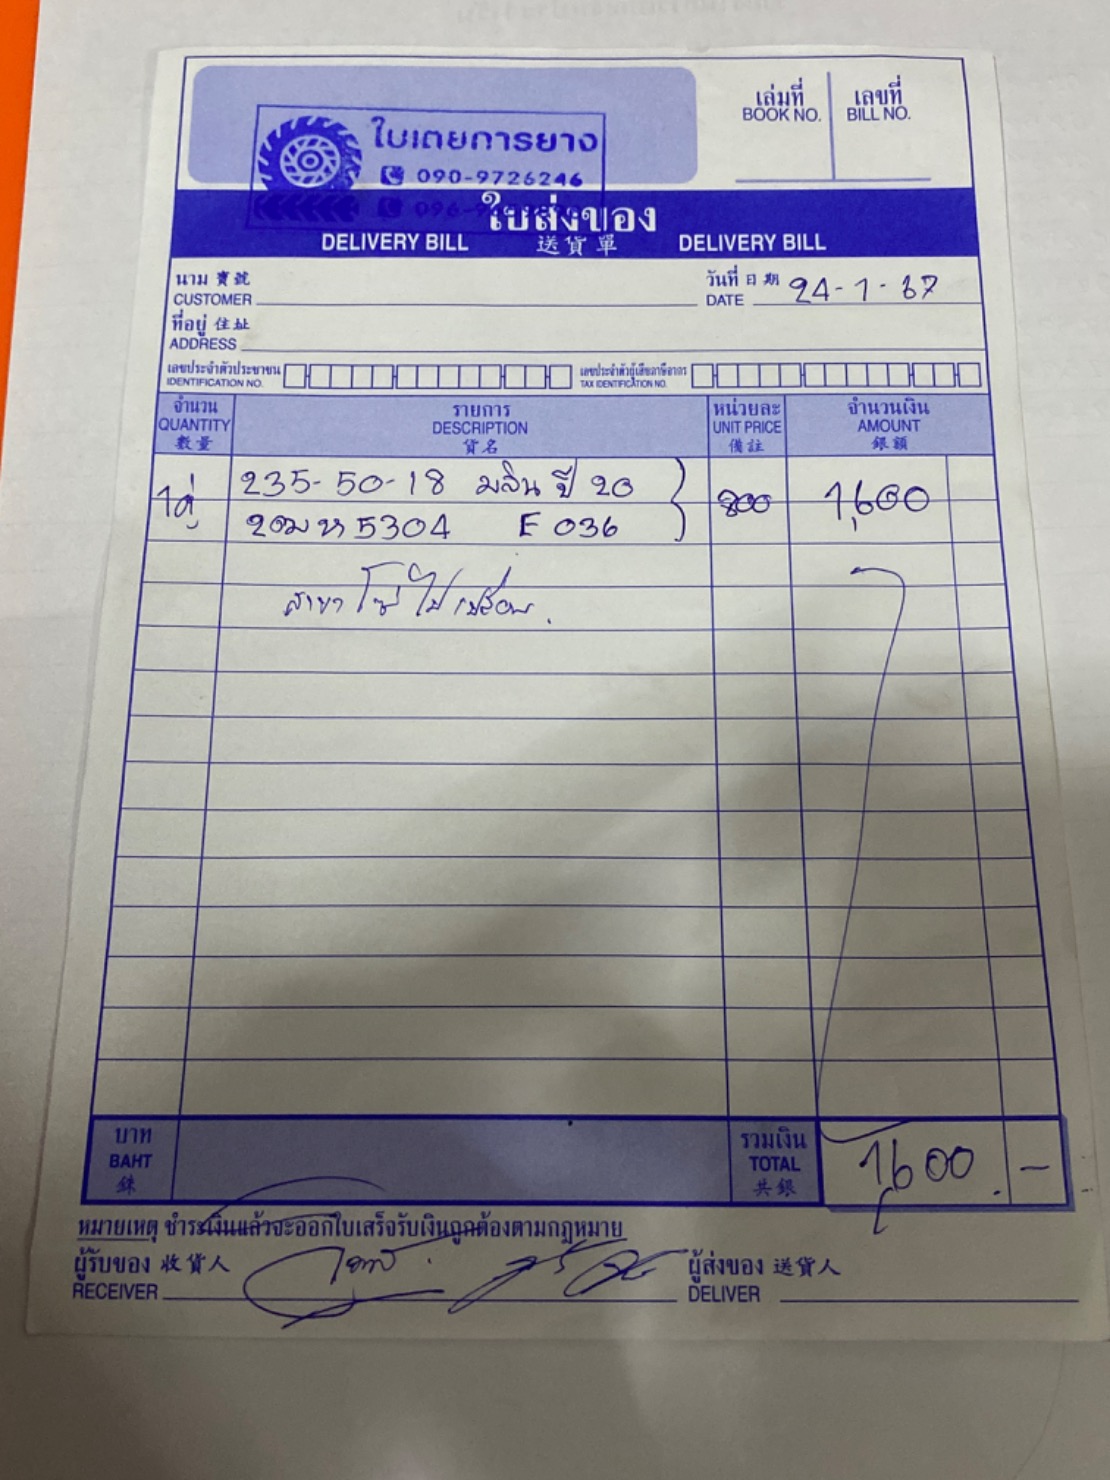 ใบเตยการยาง
090-9726246
เล่มที่ เลขที่
BOOK NO. BILL NO.
ใบส่งของ
DELIVERY BILL 送貨單 DELIVERY BILL
นาม 寶號 วันที่ 日期 24-1-67
CUSTOMER DATE
ที่อยู่ 住址
ADDRESS
เลขประจำตัวประชาชน เลขประจำตัวผู้เสียภาษีอากร
IDENTIFICATION NO. TAX IDENTIFICATION NO.
จำนวน รายการ หน่วยละ จำนวนเงิน
QUANTITY DESCRIPTION UNIT PRICE AMOUNT
數量 貨名 備註 銀額
1คู่ 235-50-18 มลิน ปี 20 800 1,600
5304 E 036
บาท รวมเงิน
BAHT TOTAL 1600 -
銖 共銀
หมายเหตุ ชำระเงินแล้วจะออกใบเสร็จรับเงินถูกต้องตามกฎหมาย
ผู้รับของ 收貨人 ผู้ส่งของ 送貨人
RECEIVER DELIVER